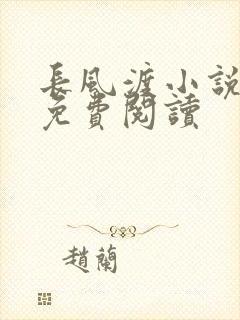 長風渡小說
免費閱讀
趙蘭